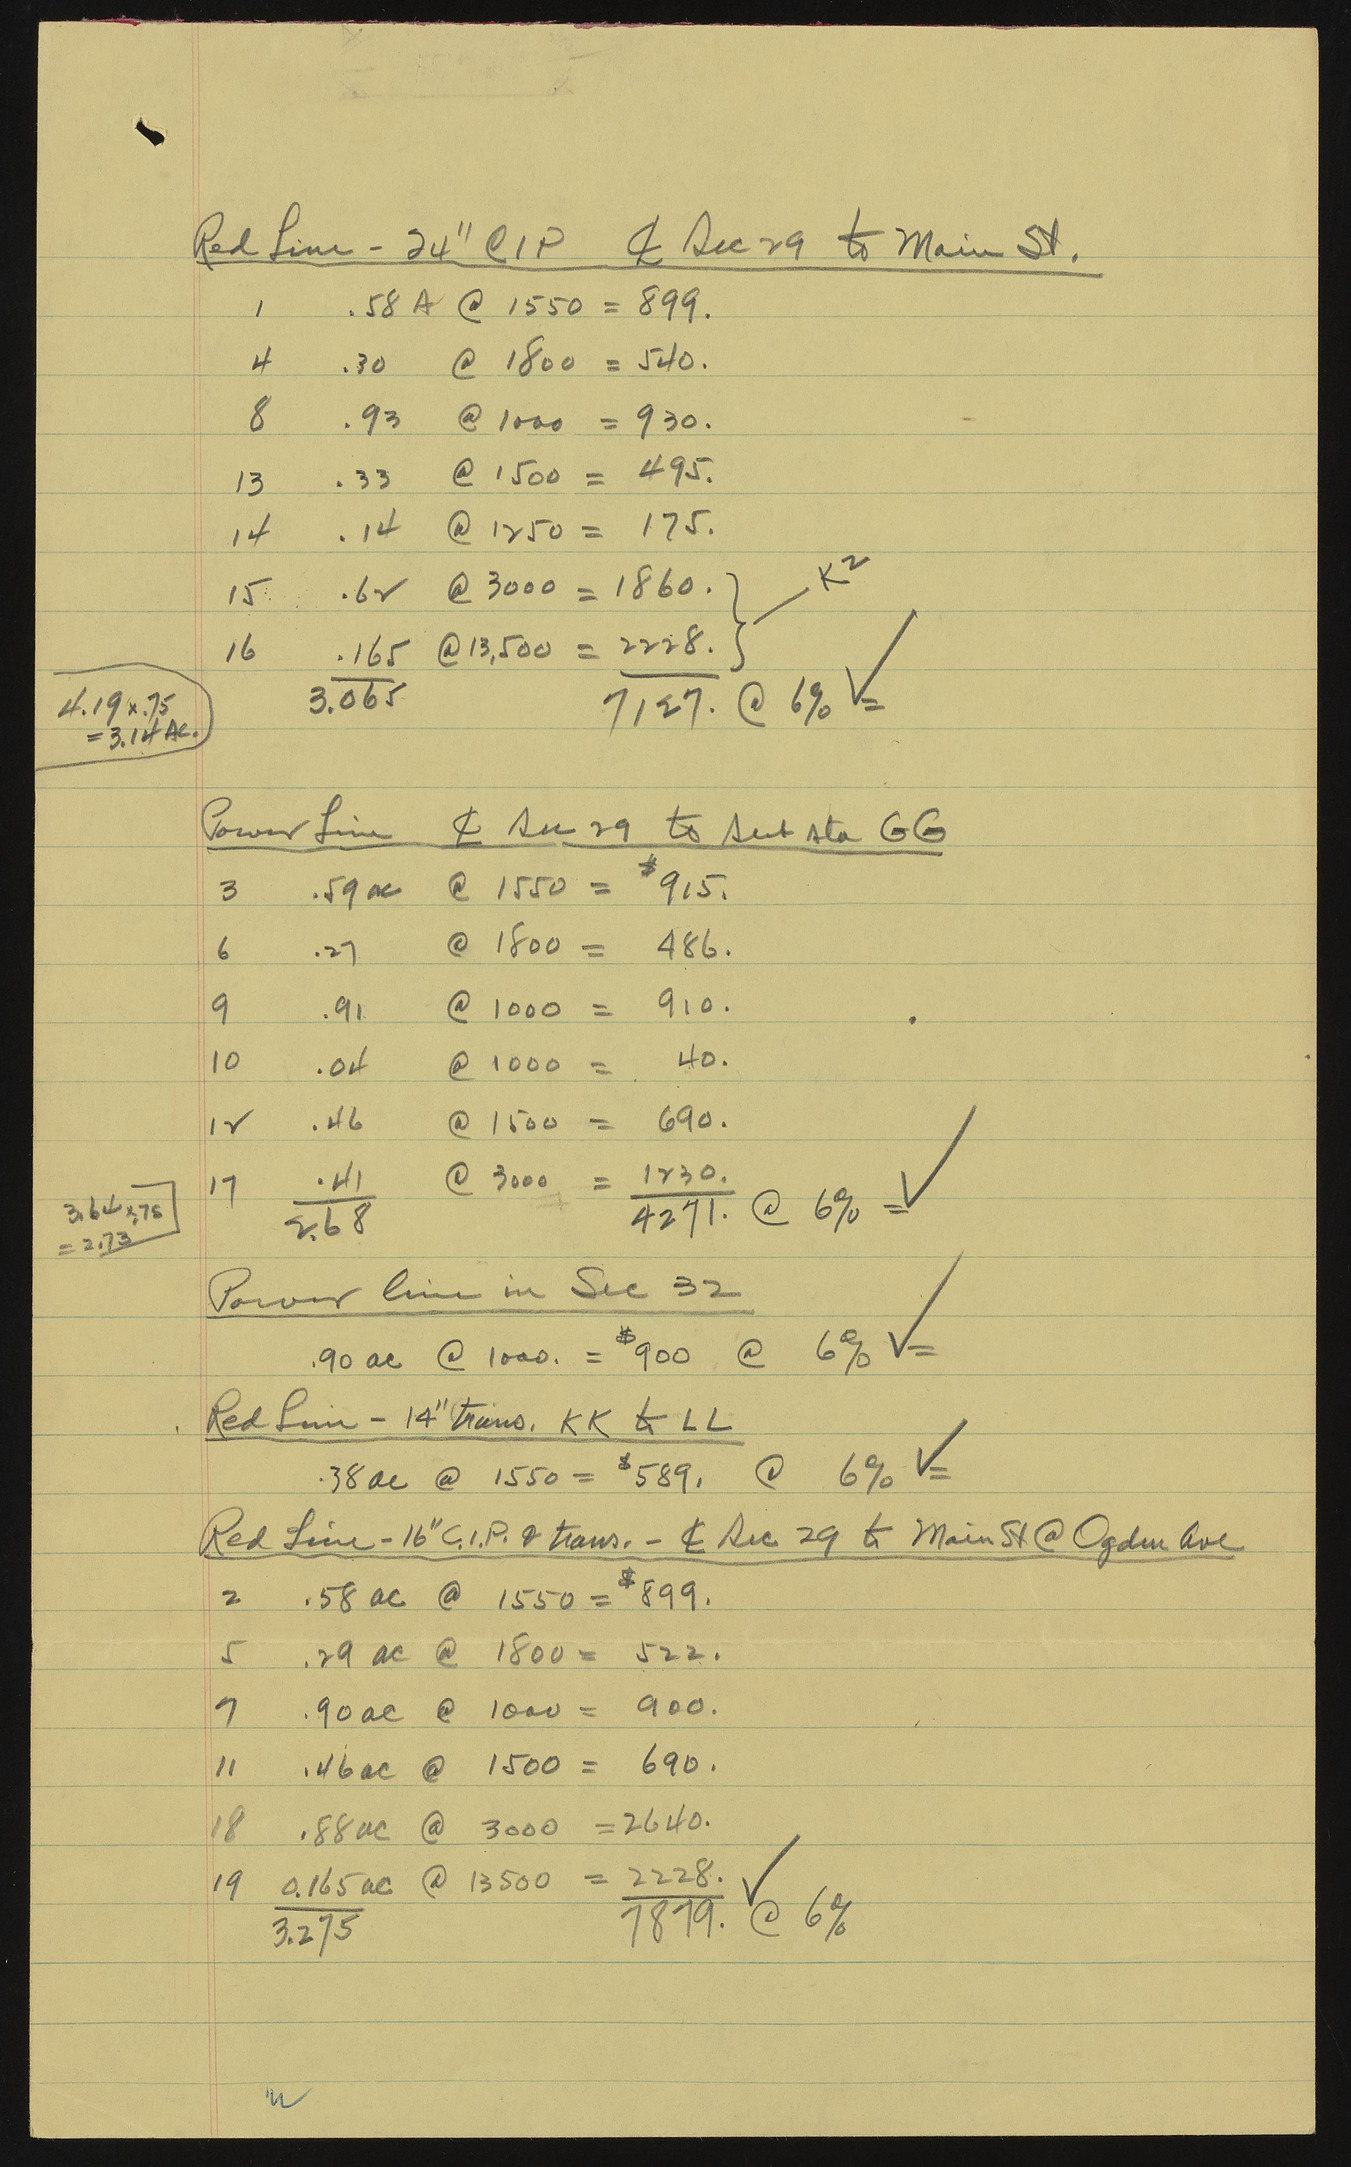 Red Line - 24" C I P ℄ Sec 29 to Main St.
1 .58 A @ 1550 = 899.
4 .30 @ 1800 = 540.
8 .93 @ 1000 = 930.
13 .33 @ 1500 = 495.
14 .14 @ 1250 = 175.
15 .62 @ 3000 = 1860.
K2
16 .165 @ 13,500 = 2228.
3.065 7127. @ 6% ✓ =
4.19 x .75
= 3.14 Ac.
Power Line ℄ Sec 29 to Sub sta GG
3 .59 ac @ 1550 = $915.
6 .27 @ 1800 = 486.
9 .91 @ 1000 = 910.
10 .04 @ 1000 = 40.
12 .46 @ 1500 = 690.
17 .41 @ 3000 = 1230.
2.68 4271. @ 6% = ✓
3.64 x .75
= 2.73
Power line in Sec 32
.90 ac @ 1000. = $900 @ 6% ✓ =
Red Line - 14" trans. KK to LL
.38 ac @ 1550 = $589. @ 6% ✓ =
Red Line - 16" C.I.P. & trans. - ℄ Sec 29 to Main St @ Ogden Ave
2 .58 ac @ 1550 = $899.
5 .29 ac @ 1800 = 522.
7 .90 ac @ 1000 = 900.
11 .46 ac @ 1500 = 690.
18 .88 ac @ 3000 = 2640.
19 0.165 ac @ 13500 = 2228.
3.275 7879. ✓ @ 6%